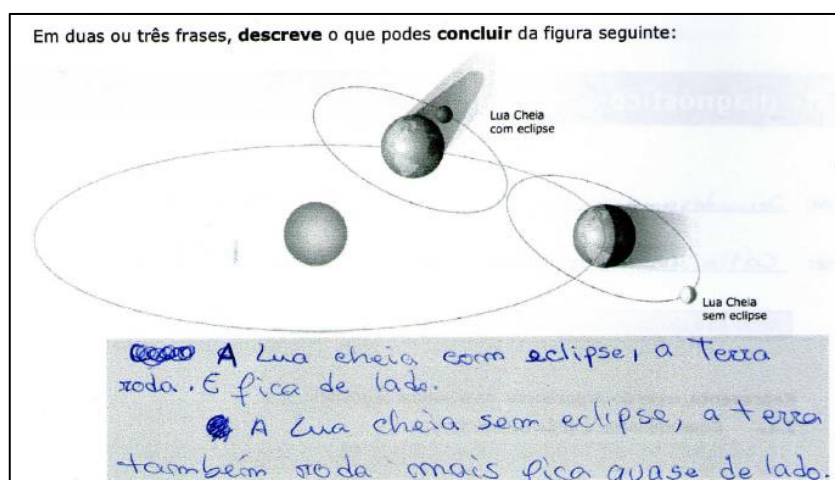 Em duas ou três frases, descreve o que podes concluir da figura seguinte:
Lua Cheia
com eclipse
Lua Cheia
sem eclipse
A Lua cheia com eclipse, a Terra
roda. E fica de lado.
A Lua cheia sem eclipse, a terra
também roda mais fica quase de lado.